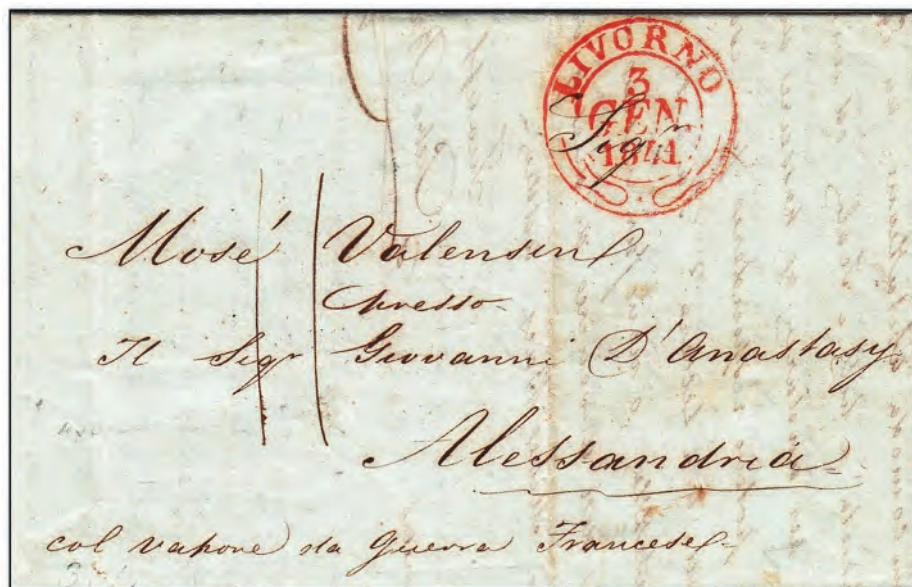 LIVORNO
3
GEN
1841
Sigr
Mosé Valensin
presso
Il Sigr Giovanni D'Anastasy
Alessandria
col vapore da Guerra Francese